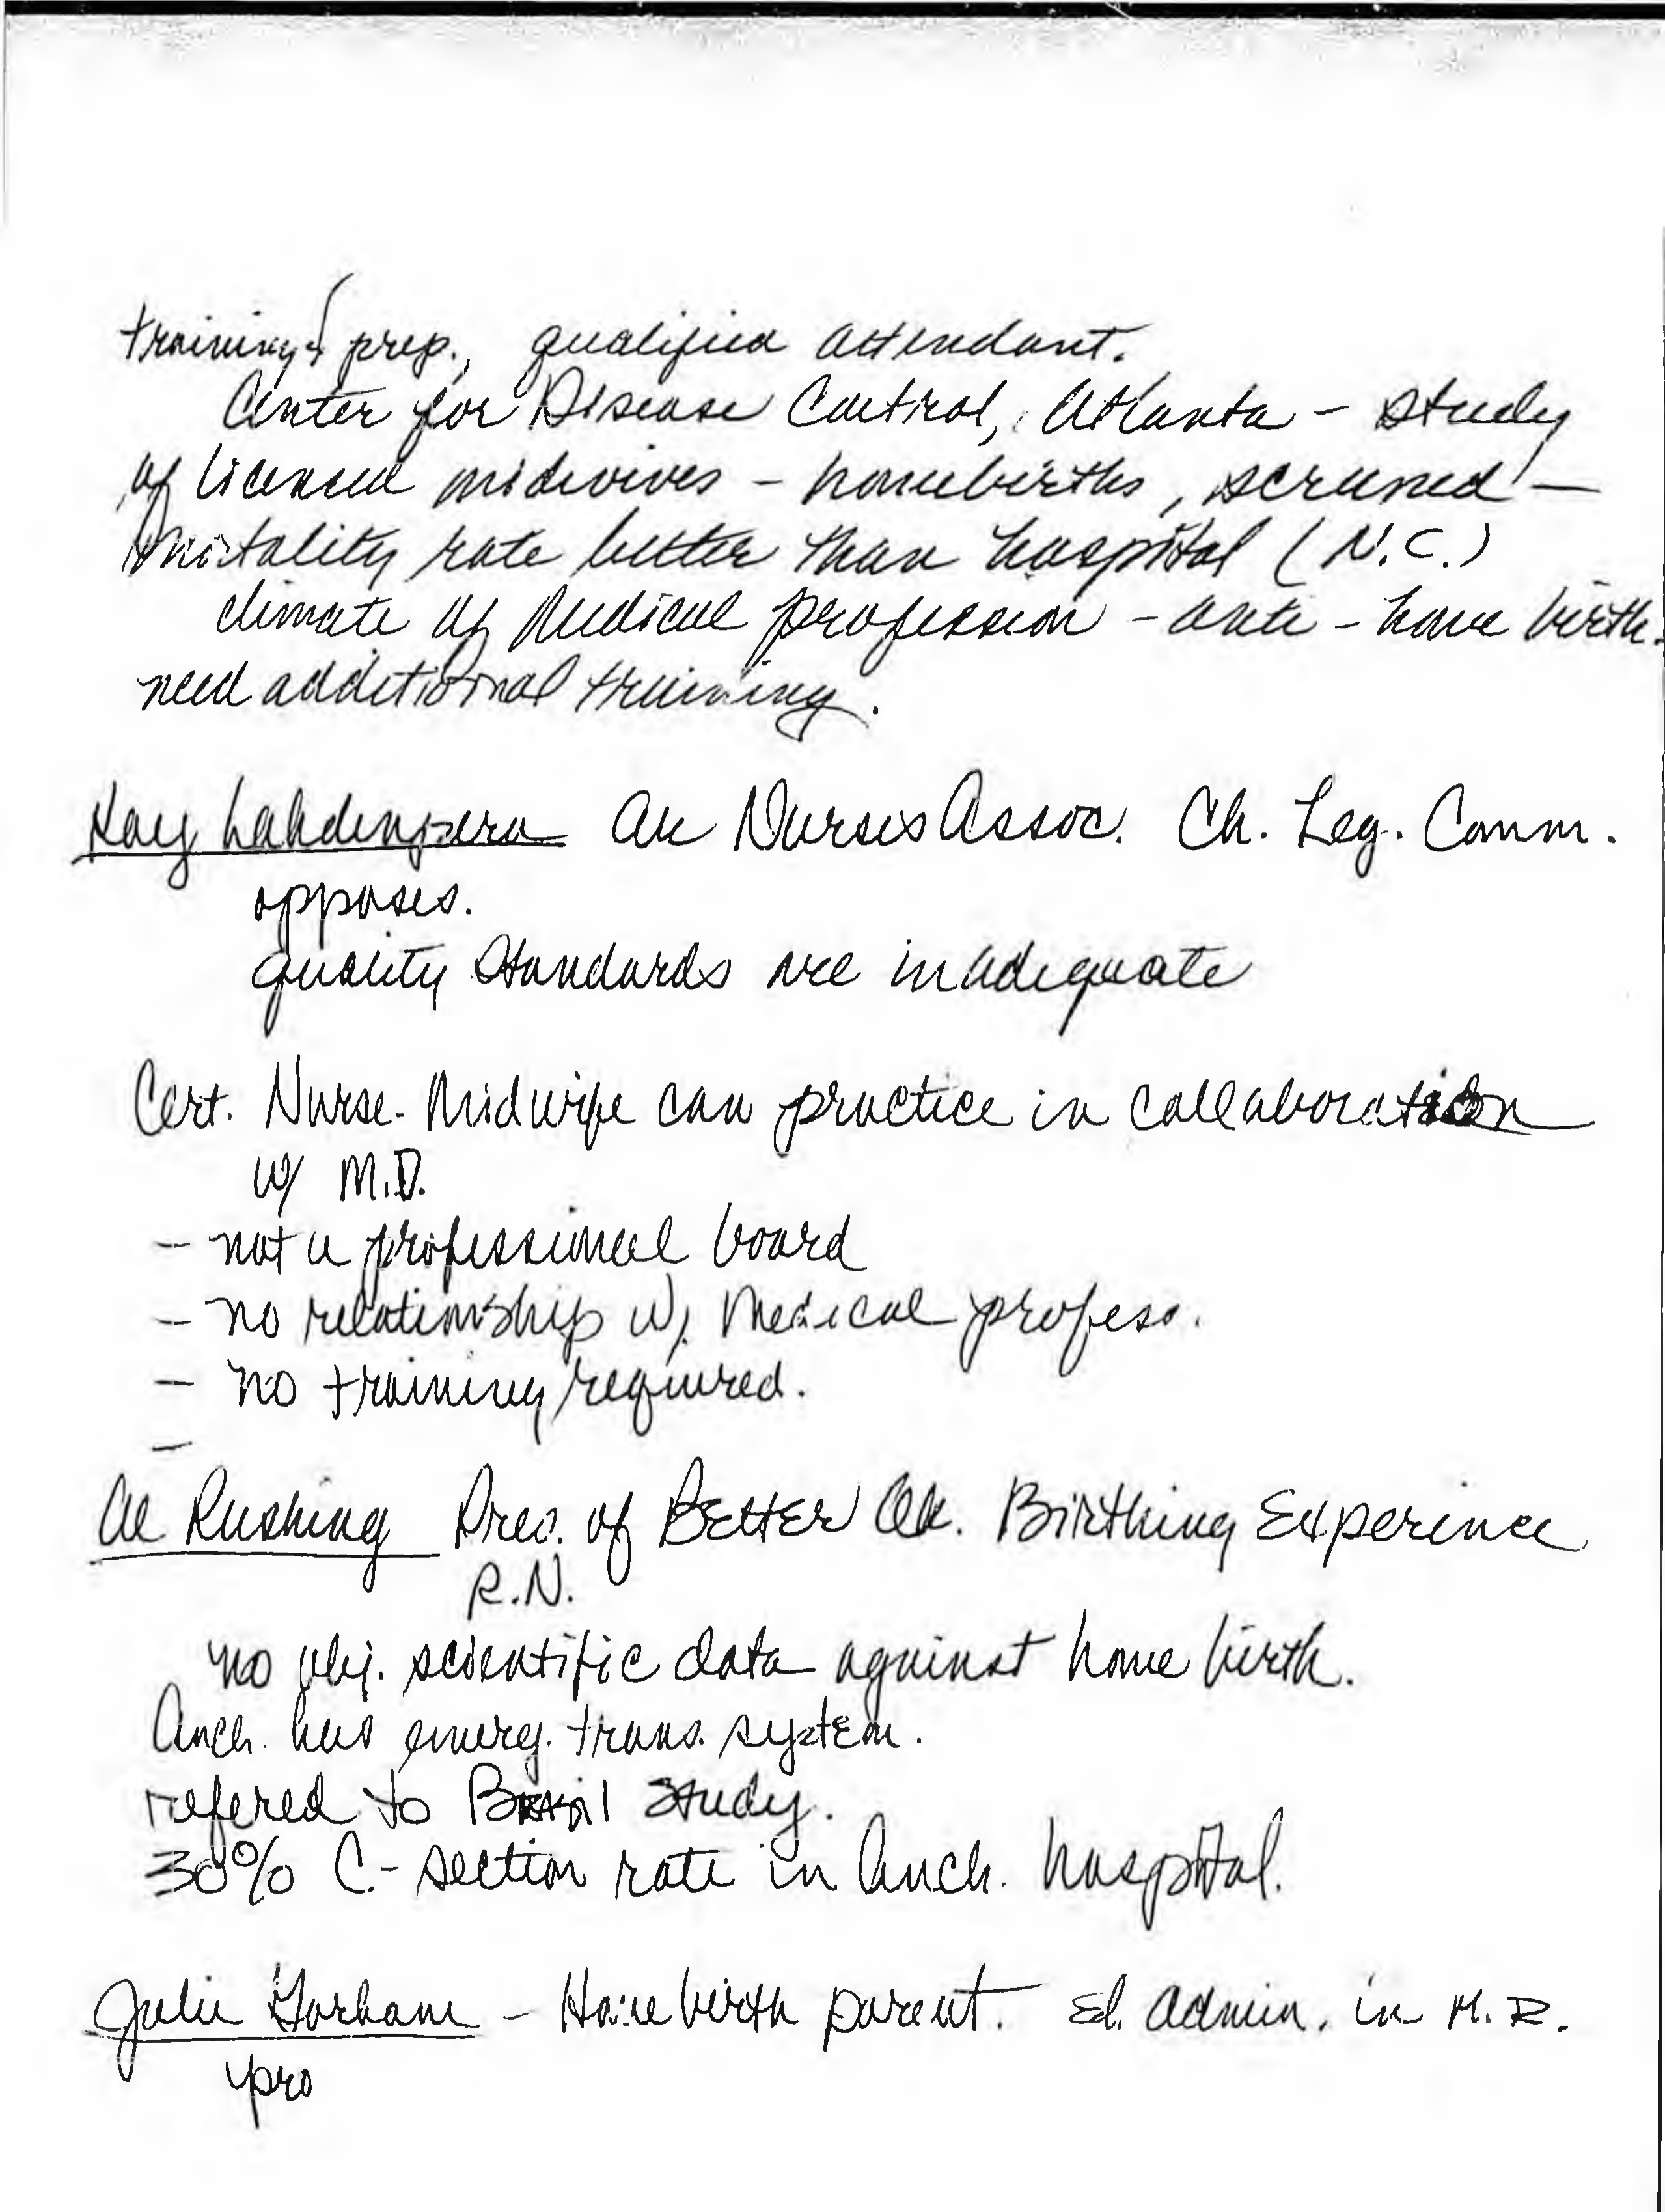 training & prep., qualified attendant.
Center for Disease Control, Atlanta - study
of licensed midwives - homebirths, screened -
mortality rate better than hospital (N.C.)
climate of medical profession - anti - home birth.
need additional training.
Kay Lahdenpera AK Nurses Assoc. Ch. Leg. Comm.
opposes.
quality standards are inadequate
Cert. Nurse-Midwife can practice in collaboration
w/ M.D.
- not a professional board
- no relationship w/ medical profess.
- no training required.
-
Al Rushing Pres. of Better Ak. Birthing Experience
R.N.
no obj. scientific data against home birth.
Anch. has emerg. trans. system.
refered to Brazil study.
30% C-section rate in Anch. hospital.
Julie Gorham - Home birth parent. Ed. Admin. in M.R.
pro